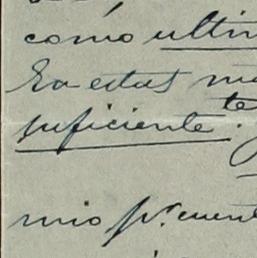 como ultim
En estas m
te
suficiente.
mio p.r cuent